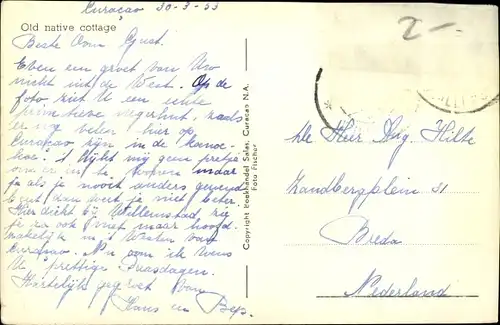 Curaçao 30-3-53
Old native cottage
Beste Oom Gust.
Even een groet van Uw
nicht uit de West. Op de
foto ziet U een echte
primitieve negerhut, zoals
er nog velen hier op
Curaçao zijn in de
Lijkt mij geen pretje
om er in te wonen maar
ja als je nooit anders gewend
bent dan weet je niet beter.
Hier dicht bij Willemstad zie
je ze ook niet maar hoofd-
zakelijk in 't Westen van
Curaçao. N'n oom ik wens
U prettige Paasdagen.
Hartelijk gegroet van
Hans en Bep.
Copyright Boekhandel Salas, Curacao N.A.
Foto Fischer
2-
De Heer Aug. Hilte
Zandbergplein 31
Breda
Nederland